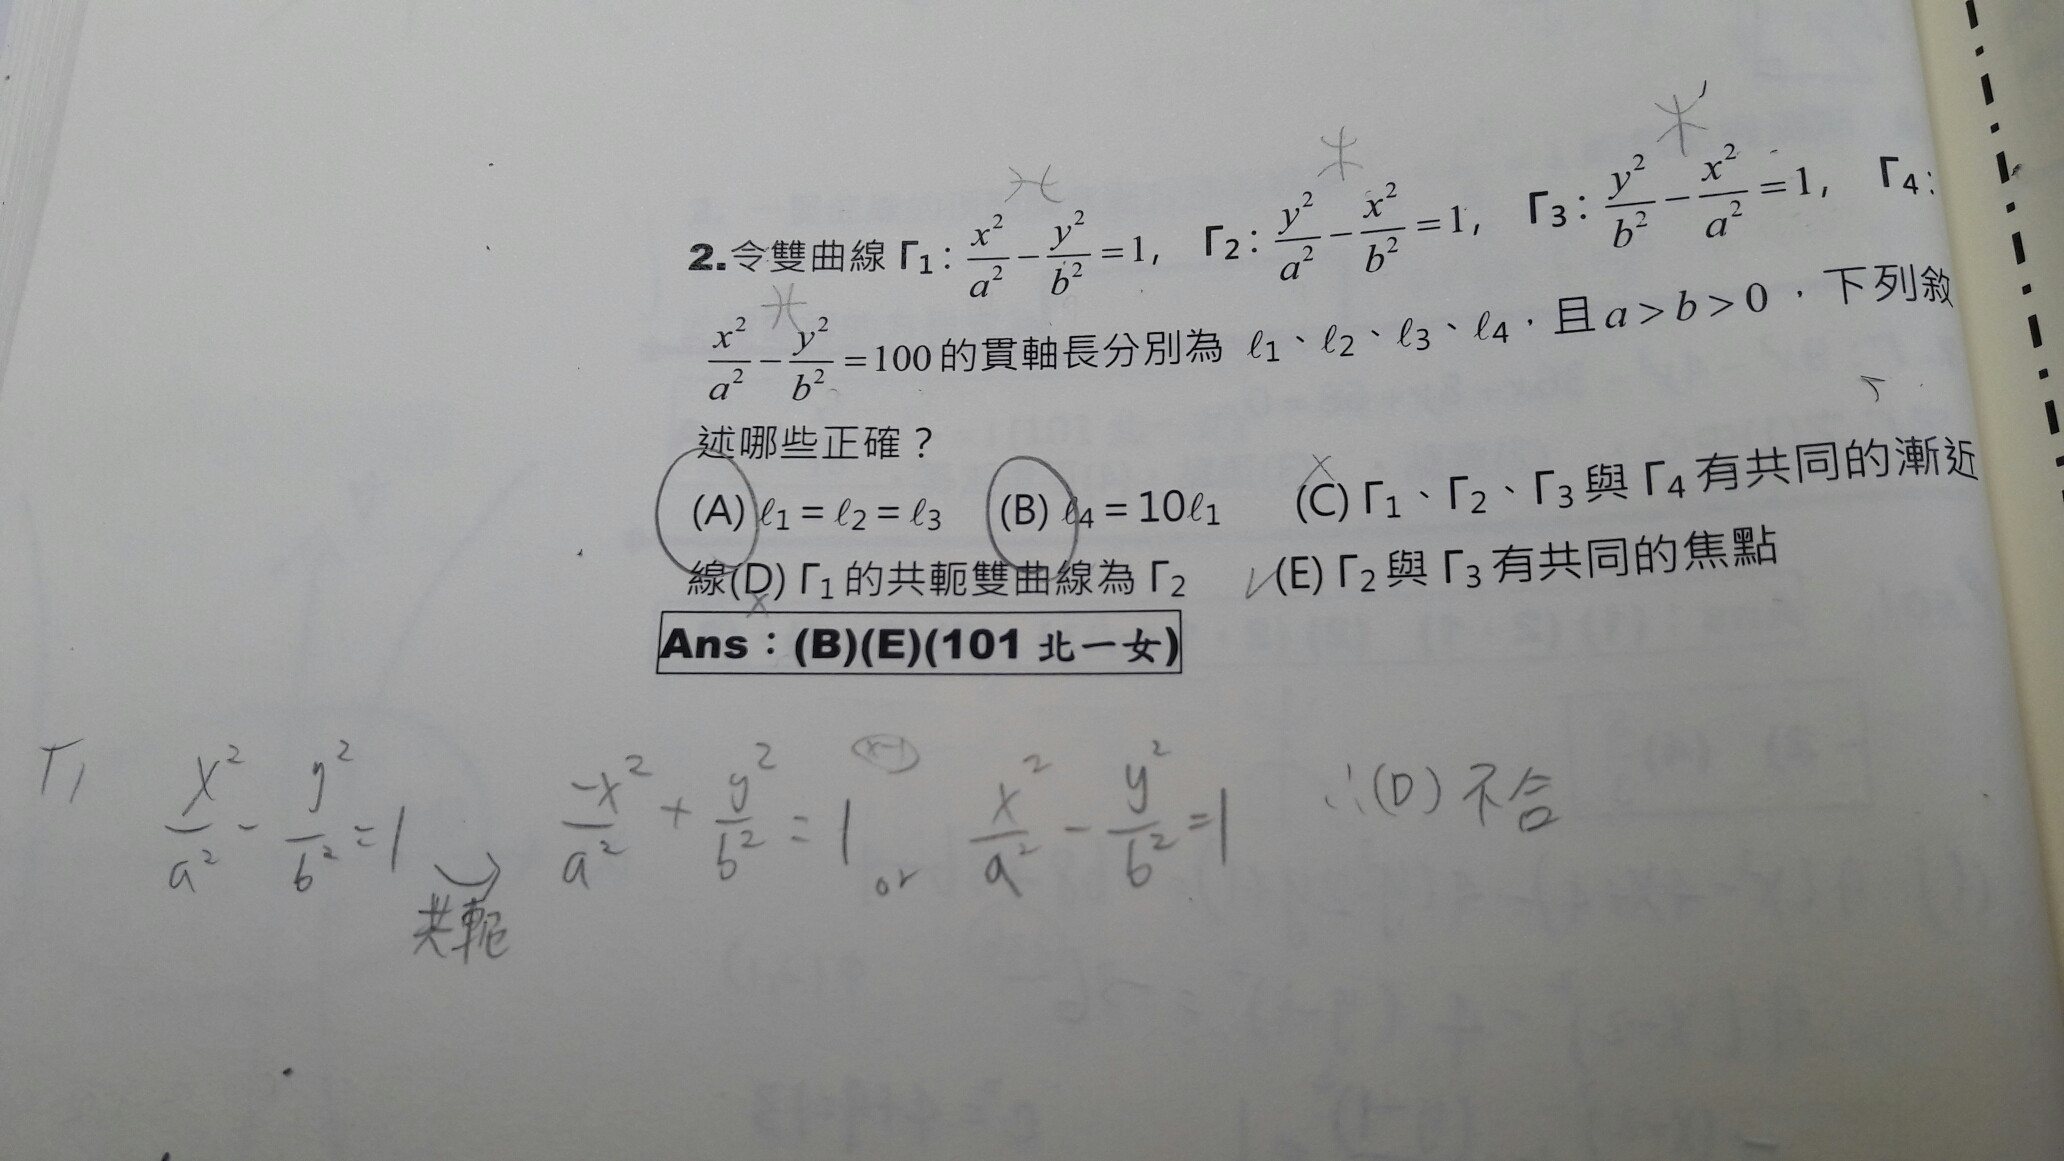 2.令雙曲線Γ1：x²/a² − y²/b² = 1，Γ2：y²/a² − x²/b² = 1，Γ3：y²/b² − x²/a² = 1，Γ4：
x²/a² − y²/b² = 100的貫軸長分別為 ℓ1、ℓ2、ℓ3、ℓ4，且a > b > 0，下列敘
述哪些正確？
(A) ℓ1 = ℓ2 = ℓ3 (B) ℓ4 = 10ℓ1 (C) Γ1、Γ2、Γ3與Γ4有共同的漸近
線(D) Γ1的共軛雙曲線為Γ2 (E) Γ2與Γ3有共同的焦點
Ans：(B)(E)(101 北一女)
Γ1 x²/a² − y²/b² = 1 共軛 −x²/a² + y²/b² = 1 or x²/a² − y²/b² = 1 ∴(D) 不合